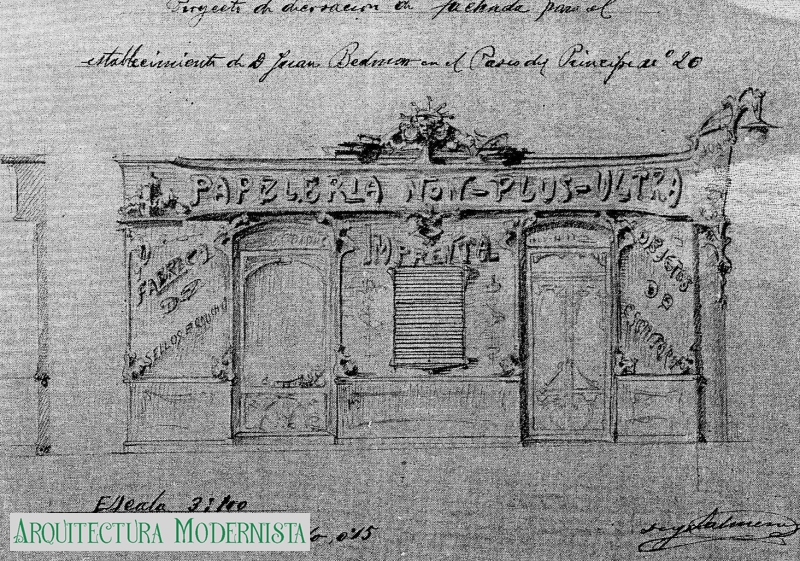 Proyecto de decoracion de fachada para el
establecimiento de D Juan Bedmar en el Paseo del Principe nº 20
PAPELERIA NON-PLUS-ULTRA
IMPRENTA
FABRICA
DE
SELLOS
OBJETOS
DE
ESCRITORIO
Escala 3:100
ARQUITECTURA MODERNISTA